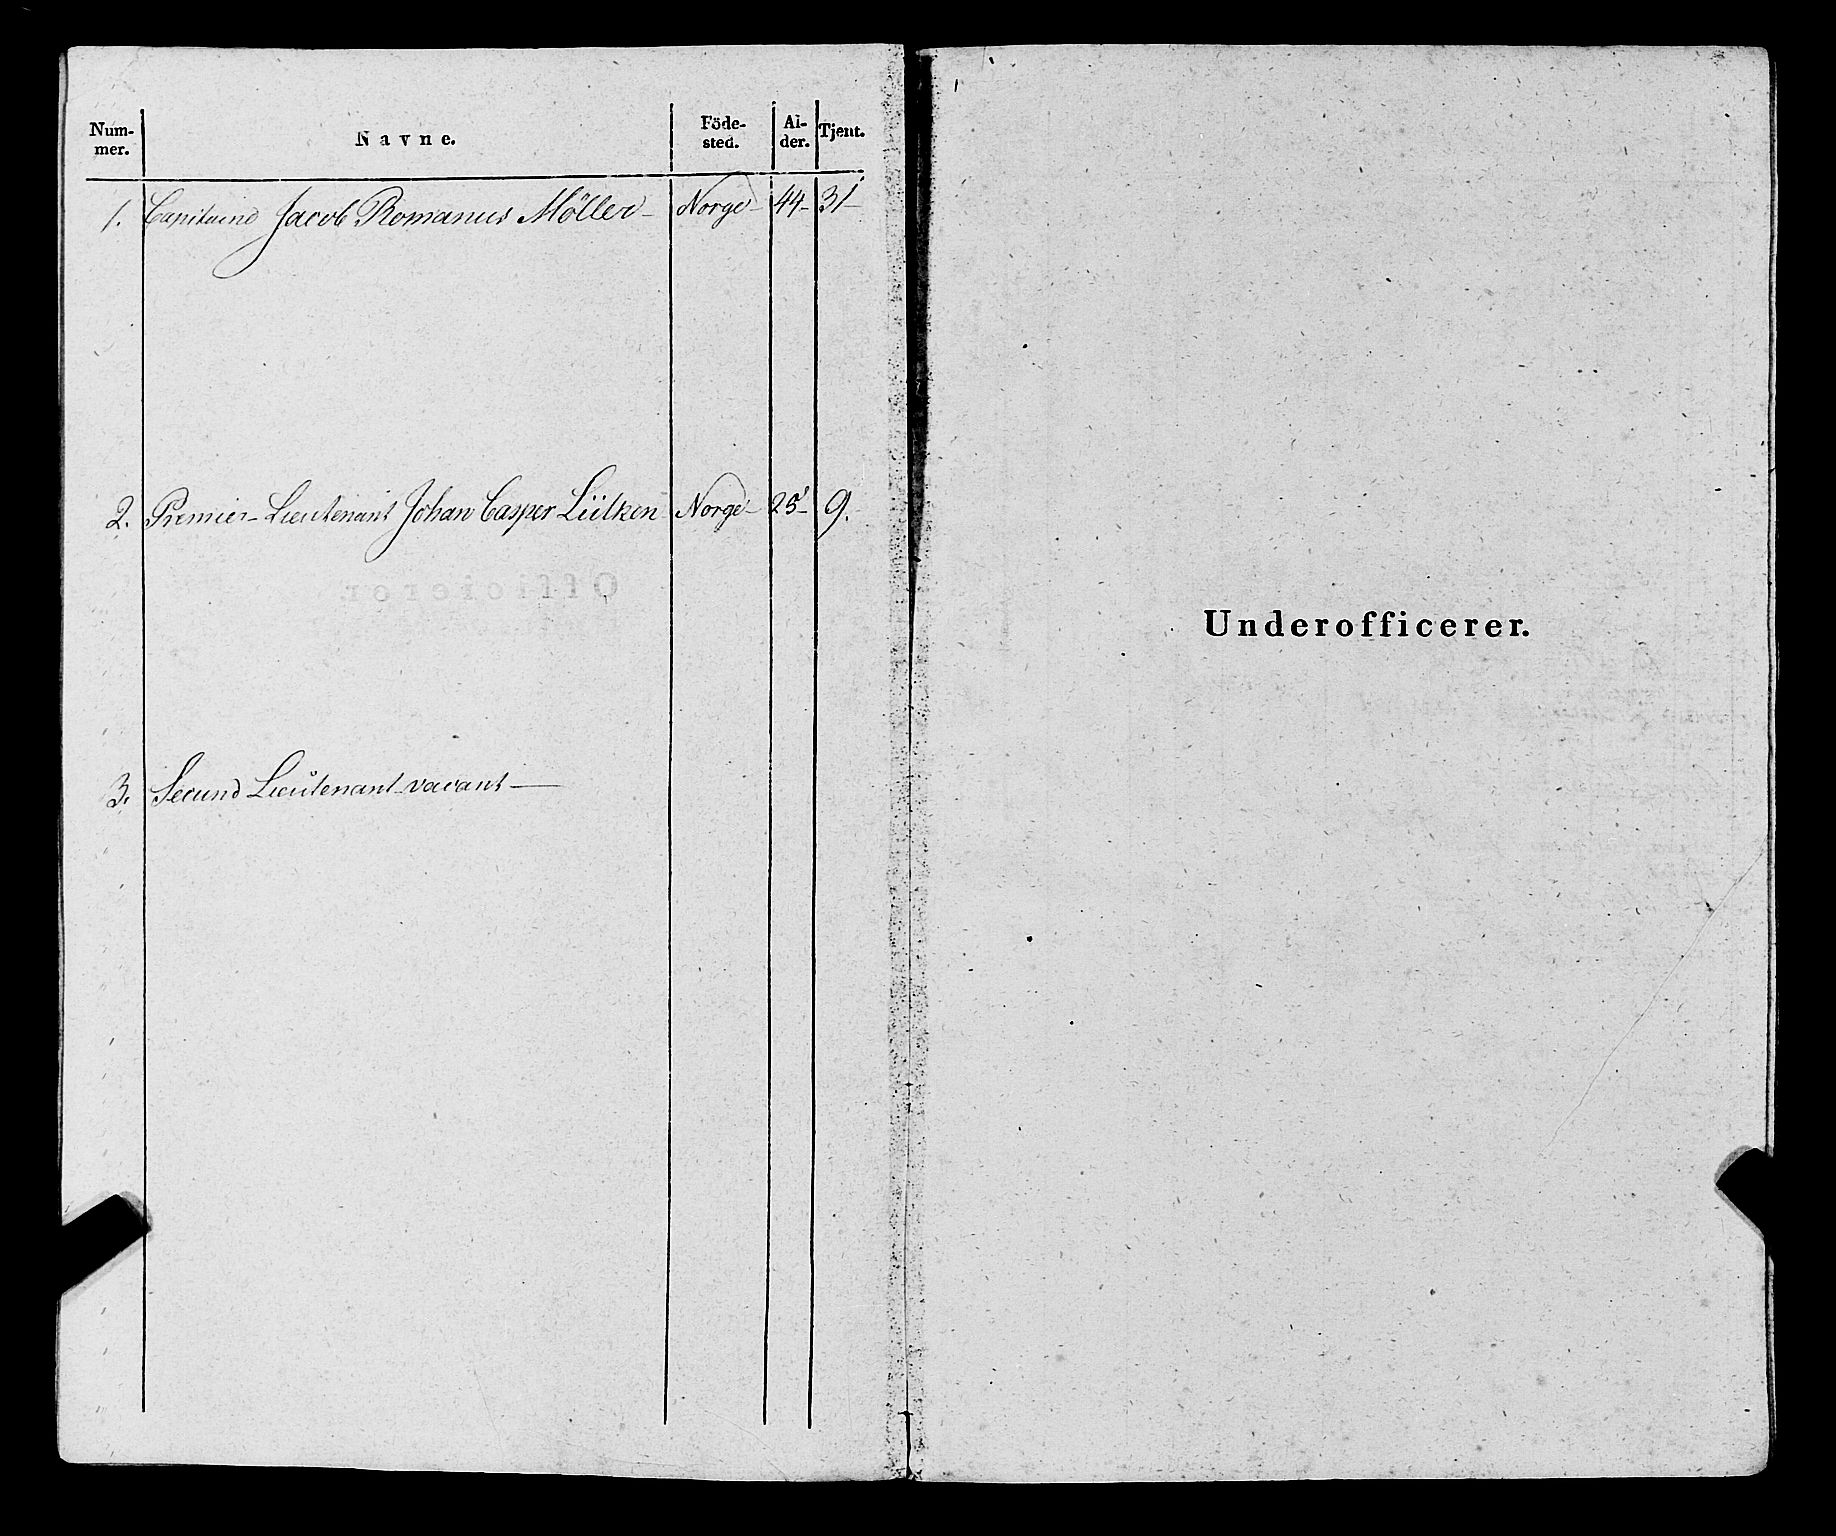 Num-
mer.
Navne.
Föde-
sted.
Al-
der.
Tjent.
1. Capitaine Jacob Romanus Möller - Norge - 44 - 31
2. Premier - Lieutenant Johan Casper Lütken Norge - 25 - 9.
Officierer.
3. Secund Lieutenant vacant —
Underofficerer.